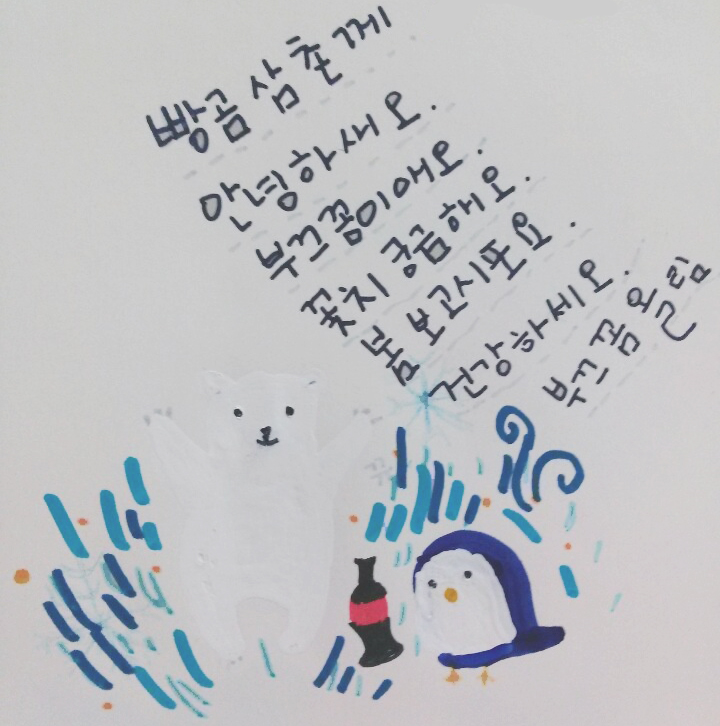 빵곰 삼촌께
안녕하세오.
부끄꼼이애오.
꽃치 궁금해오.
봄 보고시포요.
건강하세오.
부끄꼼 올림